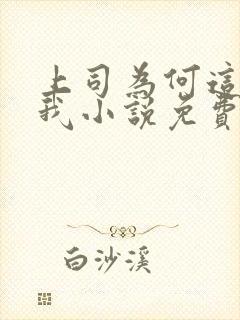 上司為何這
我小説免費
白沙溪